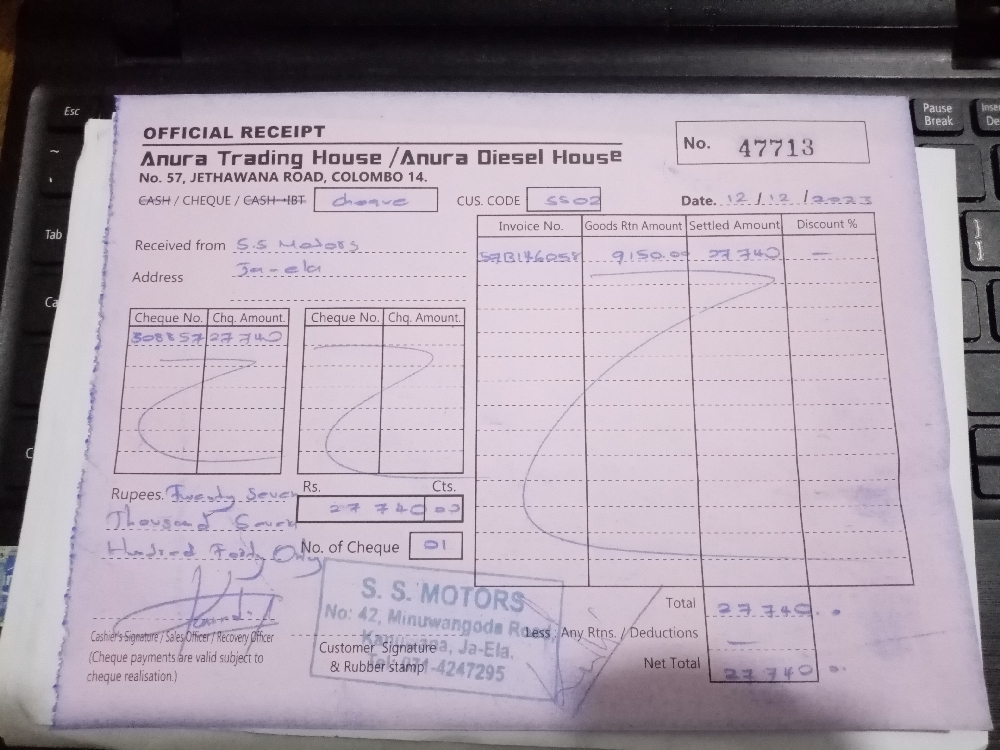 OFFICIAL RECEIPT
Anura Trading House /Anura Diesel House
No. 57, JETHAWANA ROAD, COLOMBO 14.
No. 47713
CASH / CHEQUE / CASH IBT cheque
CUS. CODE SS02
Date. 12 / 12 / 2023
Received from S.S Motors
Address Ja-ela
Invoice No. Goods Rtn Amount Settled Amount Discount %
9,150.00 27740 —
Cheque No. Chq. Amount. Cheque No. Chq. Amount.
308857 27740
Rupees. Twenty Seven
Thousand Seven
Hundred Forty Only
Rs. Cts.
27 740 00
No. of Cheque 01
S. S. MOTORS
No: 42, Minuwangoda Road,
Ja-Ela.
-4247295
Total 27740. .
Less : Any Rtns. / Deductions —
Net Total 27740 .
Cashier's Signature / Sales Officer / Recovery Officer
(Cheque payments are valid subject to
cheque realisation.)
Customer Signature
& Rubber stamp
Esc
~
Tab
Pause
Break